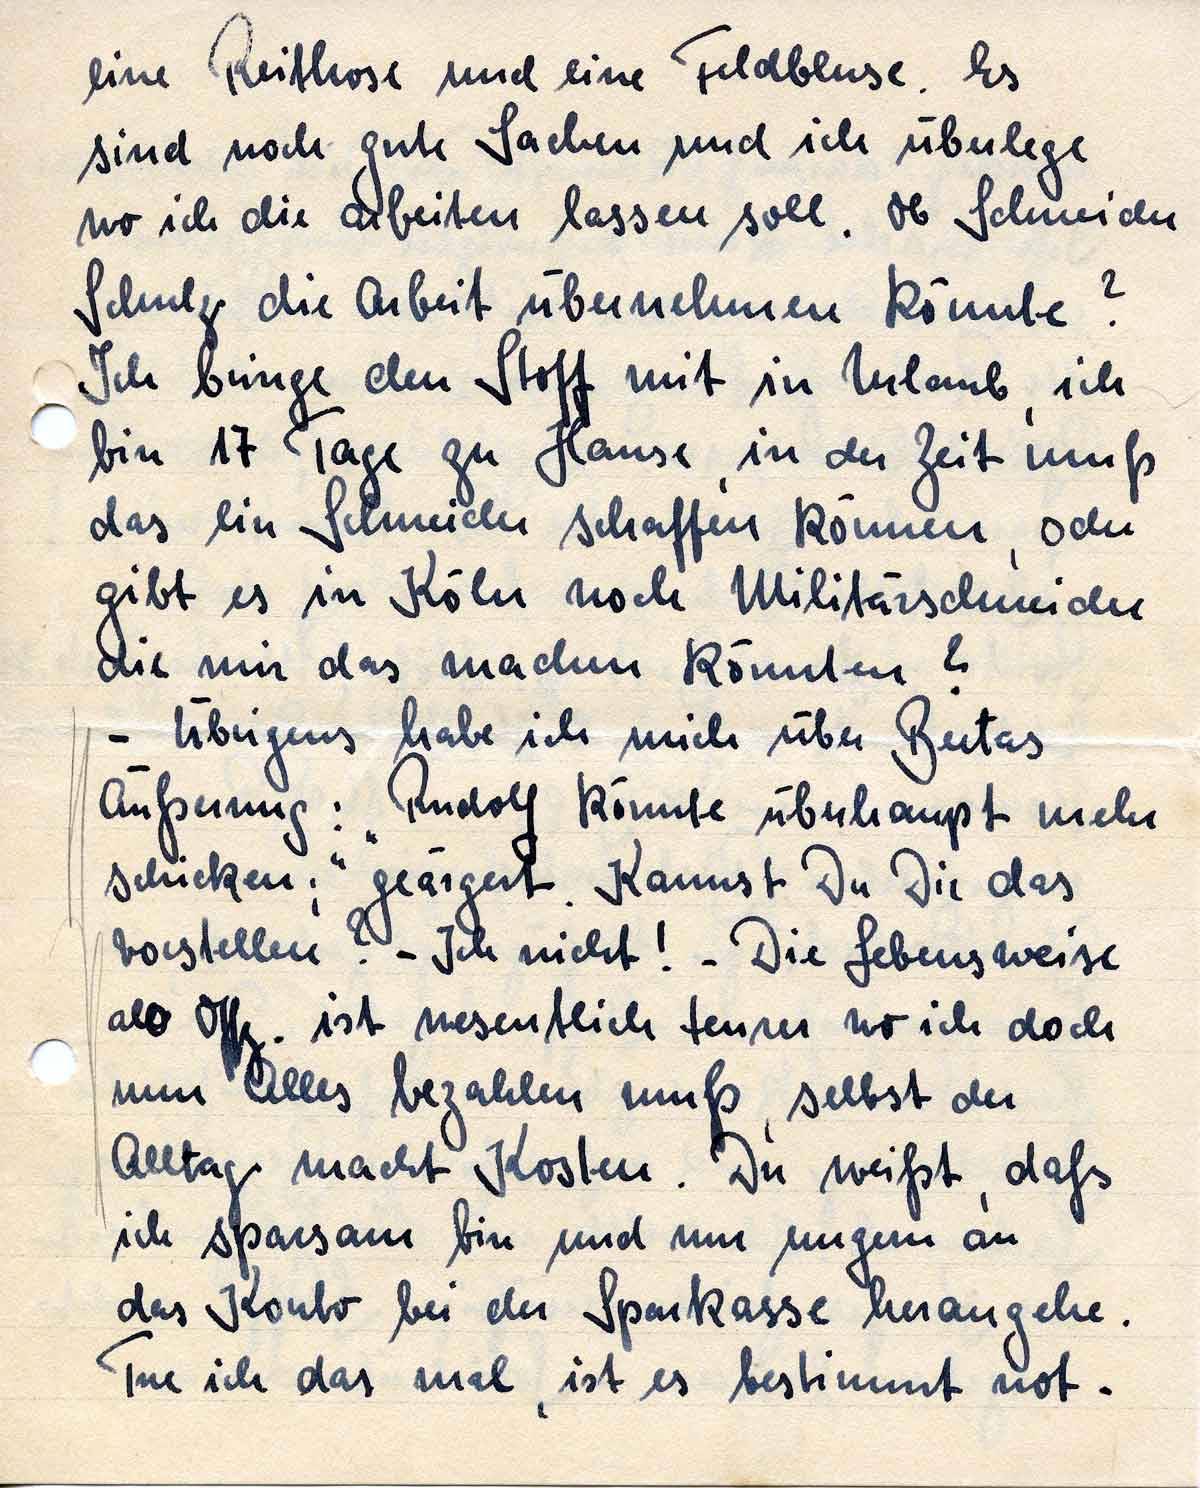 eine Reithose und eine Feldbluse. Es
sind noch gute Sachen und ich überlege
wo ich die arbeiten lassen soll. Ob Schneider
Schulz die Arbeit übernehmen könnte?
Ich bringe den Stoff mit in Urlaub, ich
bin 17 Tage zu Hause, in der Zeit muß
das ein Schneider schaffen können, oder
gibt es in Köln noch Militärschneider
die mir das machen könnten?
- Übrigens habe ich mich über Beetas
Äußerung: „Rudolf könnte überhaupt mehr
schicken;" geärgert. Kannst Du Dir das
vorstellen? - Ich nicht! - Die Lebensweise
als Offz. ist wesentlich teurer wo ich doch
nun Alles bezahlen muß, selbst der
Alltag macht Kosten. Du weißt, daß
ich sparsam bin und nur ungern an
das Konto bei der Sparkasse herangehe.
Tue ich das mal, ist es bestimmt not.